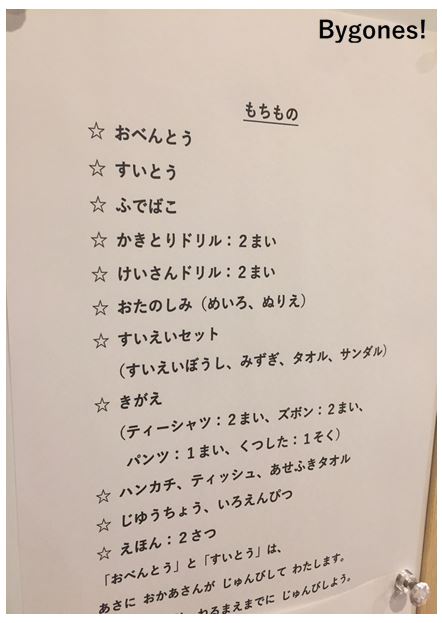 Bygones!
もちもの
☆ おべんとう
☆ すいとう
☆ ふでばこ
☆ かきとりドリル：２まい
☆ けいさんドリル：２まい
☆ おたのしみ（めいろ、ぬりえ）
☆ すいえいセット
（すいえいぼうし、みずぎ、タオル、サンダル）
☆ きがえ
（ティーシャツ：２まい、ズボン：２まい、
パンツ：１まい、くつした：１そく）
☆ ハンカチ、ティッシュ、あせふきタオル
☆ じゆうちょう、いろえんぴつ
☆ えほん：２さつ
「おべんとう」と「すいとう」は、
あさに おかあさんが じゅんびして わたします。
ねるまえまでに じゅんびしよう。